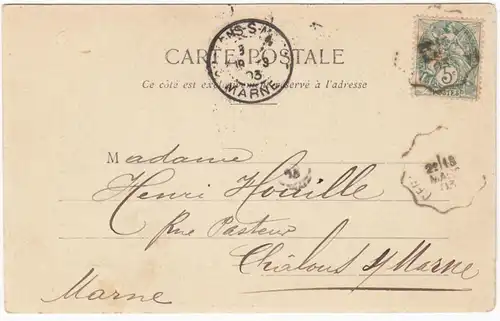 CARTE POSTALE
Ce côté est exclusivement réservé à l'adresse
MARNE
5c
POSTES
Madame
Henri Houille
Rue Pasteur
Châlons s/ Marne
Marne